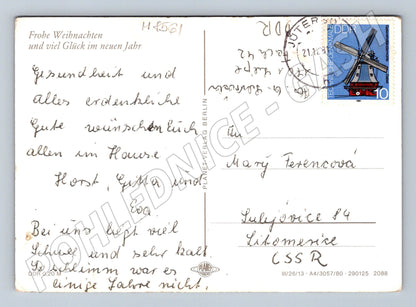 H 8561
Frohe Weihnachten
und viel Glück im neuen Jahr
Gesundheit und
alles erdenkliche
Gute wünschen Euch
allen im Hause
Horst, Gitta und
Eva
Bei uns liegt viel
Schnee und sehr kalt
So schlimm war es
einige Jahre nicht.
DDR
JÜTERBOG
DDR
10
An
Mary Ferencová
Sulejovice 84
Litomerice
CSSR
PLANET-VERLAG BERLIN
POHLEDNICE - SASH
PLANET
III/26/13 - A4/3057/80 - 290125 2088